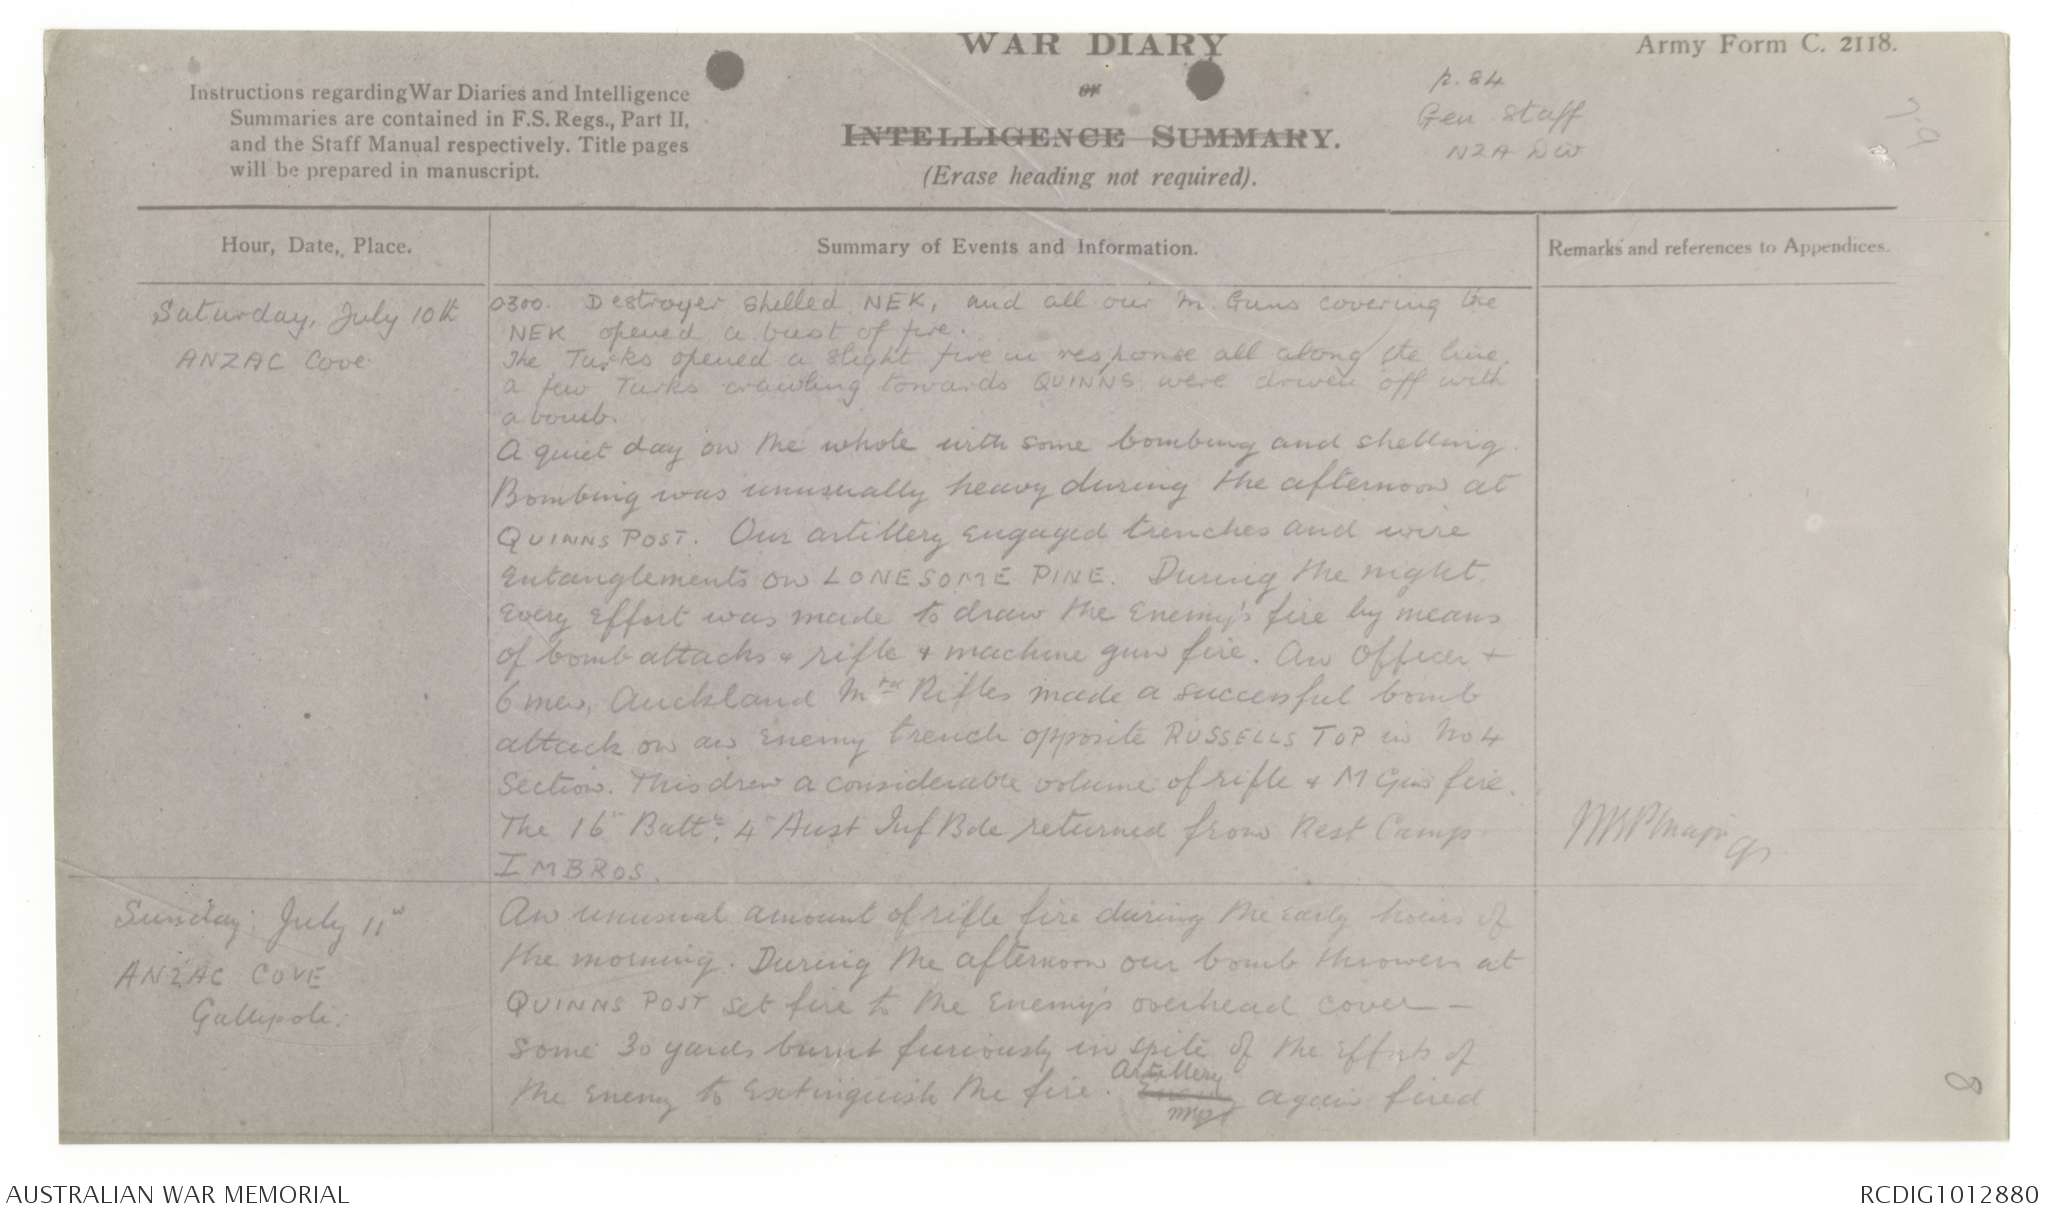 WAR DIARY
or
INTELLIGENCE SUMMARY.
(Erase heading not required).
Army Form C. 2118.
Instructions regarding War Diaries and Intelligence
Summaries are contained in F.S. Regs., Part II,
and the Staff Manual respectively. Title pages
will be prepared in manuscript.
p. 84
Gen Staff
NZA DIV
Hour, Date, Place.
Summary of Events and Information.
Remarks and references to Appendices.
Saturday, July 10th
ANZAC Cove
0300. Destroyer shelled NEK, and all our M. Guns covering the
NEK opened a burst of fire.
The Turks opened a slight fire in response all along the line.
a few Turks crawling towards QUINNS were driven off with
a bomb.
A quiet day on the whole with some bombing and shelling.
Bombing was unusually heavy during the afternoon at
QUINNS POST. Our artillery engaged trenches and wire
entanglements on LONESOME PINE. During the night
every effort was made to draw the Enemy's fire by means
of bomb attacks + rifle + machine gun fire. An Officer +
6 men, Auckland Mtd Rifles made a successful bomb
attack on an Enemy trench opposite RUSSELLS TOP in No 4
Section. This drew a considerable volume of rifle + M Gun fire.
The 16th Battn. 4th Aust Inf Bde returned from Rest Camp
IMBROS.
Major
Sunday July 11th
ANZAC COVE
Gallipoli.
An unusual amount of rifle fire during the early hours of
the morning. During the afternoon our bomb throwers at
QUINNS POST set fire to the Enemy's overhead cover –
some 30 yards burnt furiously in spite of the efforts of
the Enemy to extinguish the fire. Artillery again fired
8
AUSTRALIAN WAR MEMORIAL
RCDIG1012880